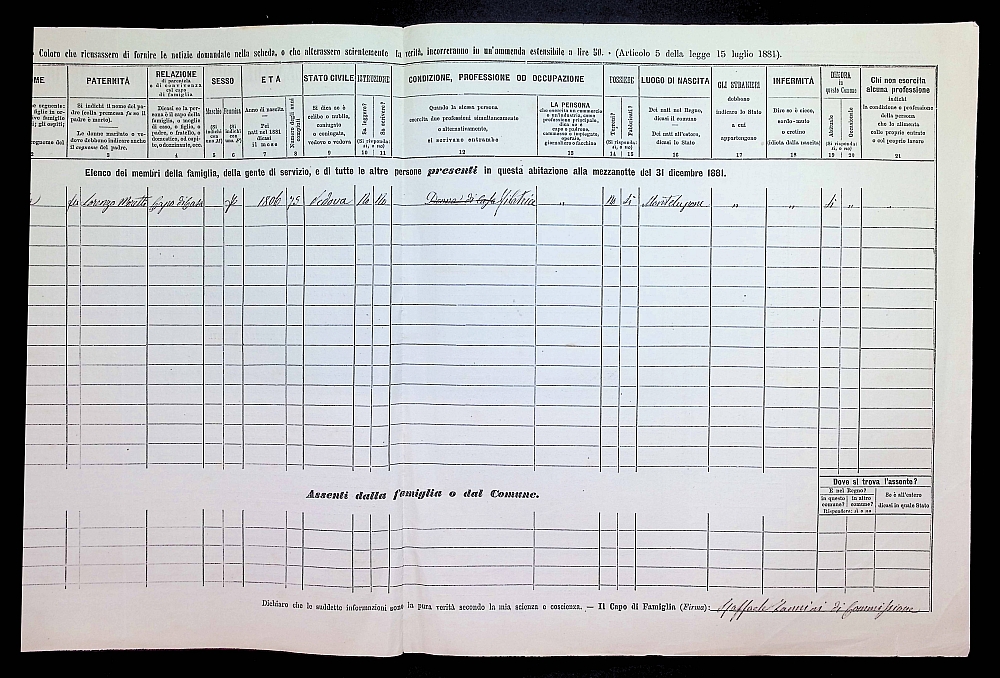 Coloro che ricusassero di fornire le notizie domandate nella scheda, o che alterassero scientemente la verità, incorreranno in un'ammenda estensibile a lire 50. - (Articolo 5 della legge 15 luglio 1881).
OME PATERNITÀ RELAZIONE di parentela o di convivenza col capo di famiglia SESSO ETÀ STATO CIVILE ISTRUZIONE CONDIZIONE, PROFESSIONE OD OCCUPAZIONE POSSIEDE LUOGO DI NASCITA GLI STRANIERI INFERMITÀ DIMORA in questo Comune Chi non esercita alcuna professione
Si indichi il nome del padre (colla premessa fu se il padre è morto).
Le donne maritate o vedove debbono indicare anche il cognome del padre.
Dicasi se la persona è il capo della famiglia, o moglie di caso, o figlio, o padre, o fratello, o domestico, od ospite, o dozzinante, ecc.
Maschio (Si indichi con una M)
Femmina (Si indichi con una F)
Anno di nascita
Pei nati nel 1881 dicasi il mese
Numero degli anni compiuti
Si dica se è celibe o nubile, coniugato o coniugata, vedovo o vedova
Sa leggere? Sa scrivere?
(Si risponda: sì, o no)
Quando la stessa persona esercita due professioni simultaneamente o alternativamente, si scrivano entrambe
LA PERSONA
che esercita un commercio o un'industria, come professione principale, dica se è capo o padrone, commesso o impiegato, operaio, giornaliero o facchino
Terreni? Fabbricati?
(Si risponda: sì, o no)
Dei nati nel Regno, dicasi il comune
Dei nati all'estero, dicasi lo Stato
debbono indicare lo Stato a cui appartengono
Dire se è cieco, sordo-muto o cretino idiota dalla nascita
Abituale Occasionale
(Si risponda: sì, o no)
indichi la condizione o professione della persona che lo alimenta colle proprie entrate o col proprio lavoro
2 3 4 5 6 7 8 9 10 11 12 13 14 15 16 17 18 19 20 21
Elenco dei membri della famiglia, della gente di servizio, e di tutte le altre persone presenti in questa abitazione alla mezzanotte del 31 dicembre 1881.
fu Lorenzo Moretti Capo di Casa f 1806 75 Vedova No No Donna di Casa filatrice " No Si Montelupone " " Si " "
Assenti dalla famiglia o dal Comune.
Dove si trova l'assente?
È nel Regno?
in questo comune? in altro comune?
Rispondere: sì o no
Se è all'estero dicasi in quale Stato
Dichiaro che le suddette informazioni sono la pura verità secondo la mia scienza e coscienza. — Il Capo di Famiglia (Firma): Raffaele di Commissione